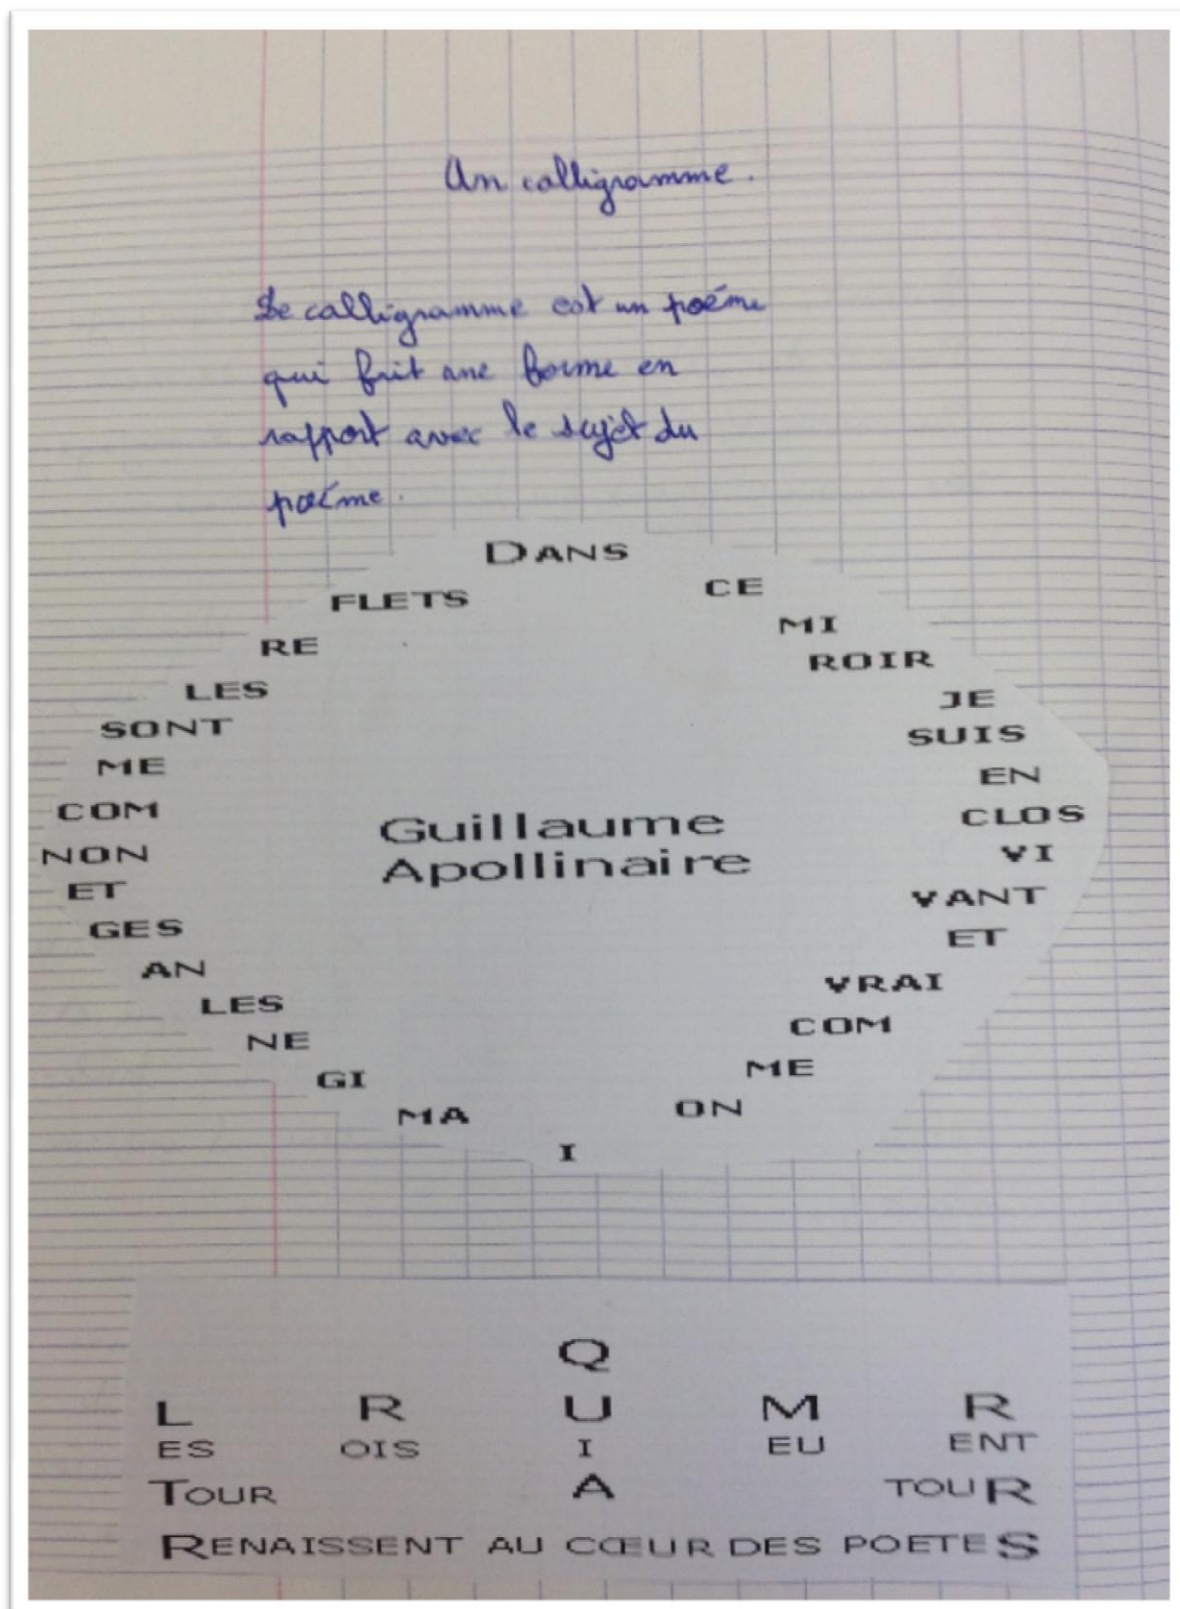 Un calligramme.
Le calligramme est un poéme
qui fait une forme en
rapport avec le sujet du
poéme.
DANS
CE
MI
ROIR
JE
SUIS
EN
CLOS
VI
VANT
ET
VRAI
COM
ME
ON
I
MA
GI
NE
LES
AN
GES
ET
NON
COM
ME
SONT
LES
RE
FLETS
Guillaume
Apollinaire
Q
L R U M R
ES OIS I EU ENT
TOUR A TOUR
RENAISSENT AU CŒUR DES POETES